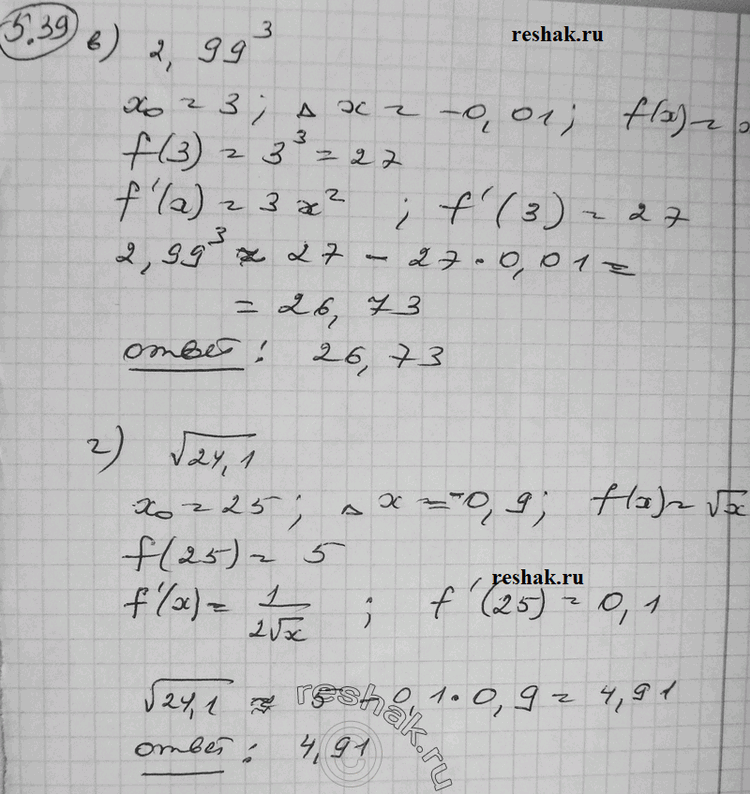 5.39 в) 2,99³
reshak.ru
x₀ = 3; Δx = -0,01; f(x) =
f(3) = 3³ = 27
f'(x) = 3x² ; f'(3) = 27
2,99³ ≈ 27 - 27·0,01 =
= 26,73
ответ: 26,73
г) √24,1
x₀ = 25; Δx = -0,9; f(x) = √x
f(25) = 5
reshak.ru
f'(x) = 1/(2√x) ; f'(25) = 0,1
√24,1 ≈ 5 - 0,1·0,9 = 4,91
reshak.ru
©
ответ: 4,91